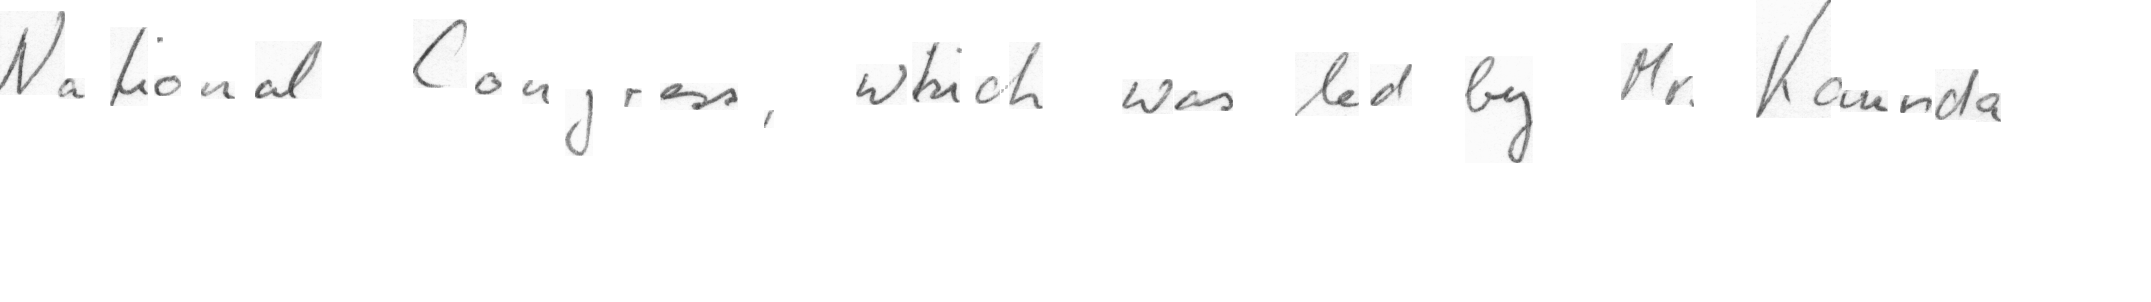 National Congress, which was led by Mr. Kaunda